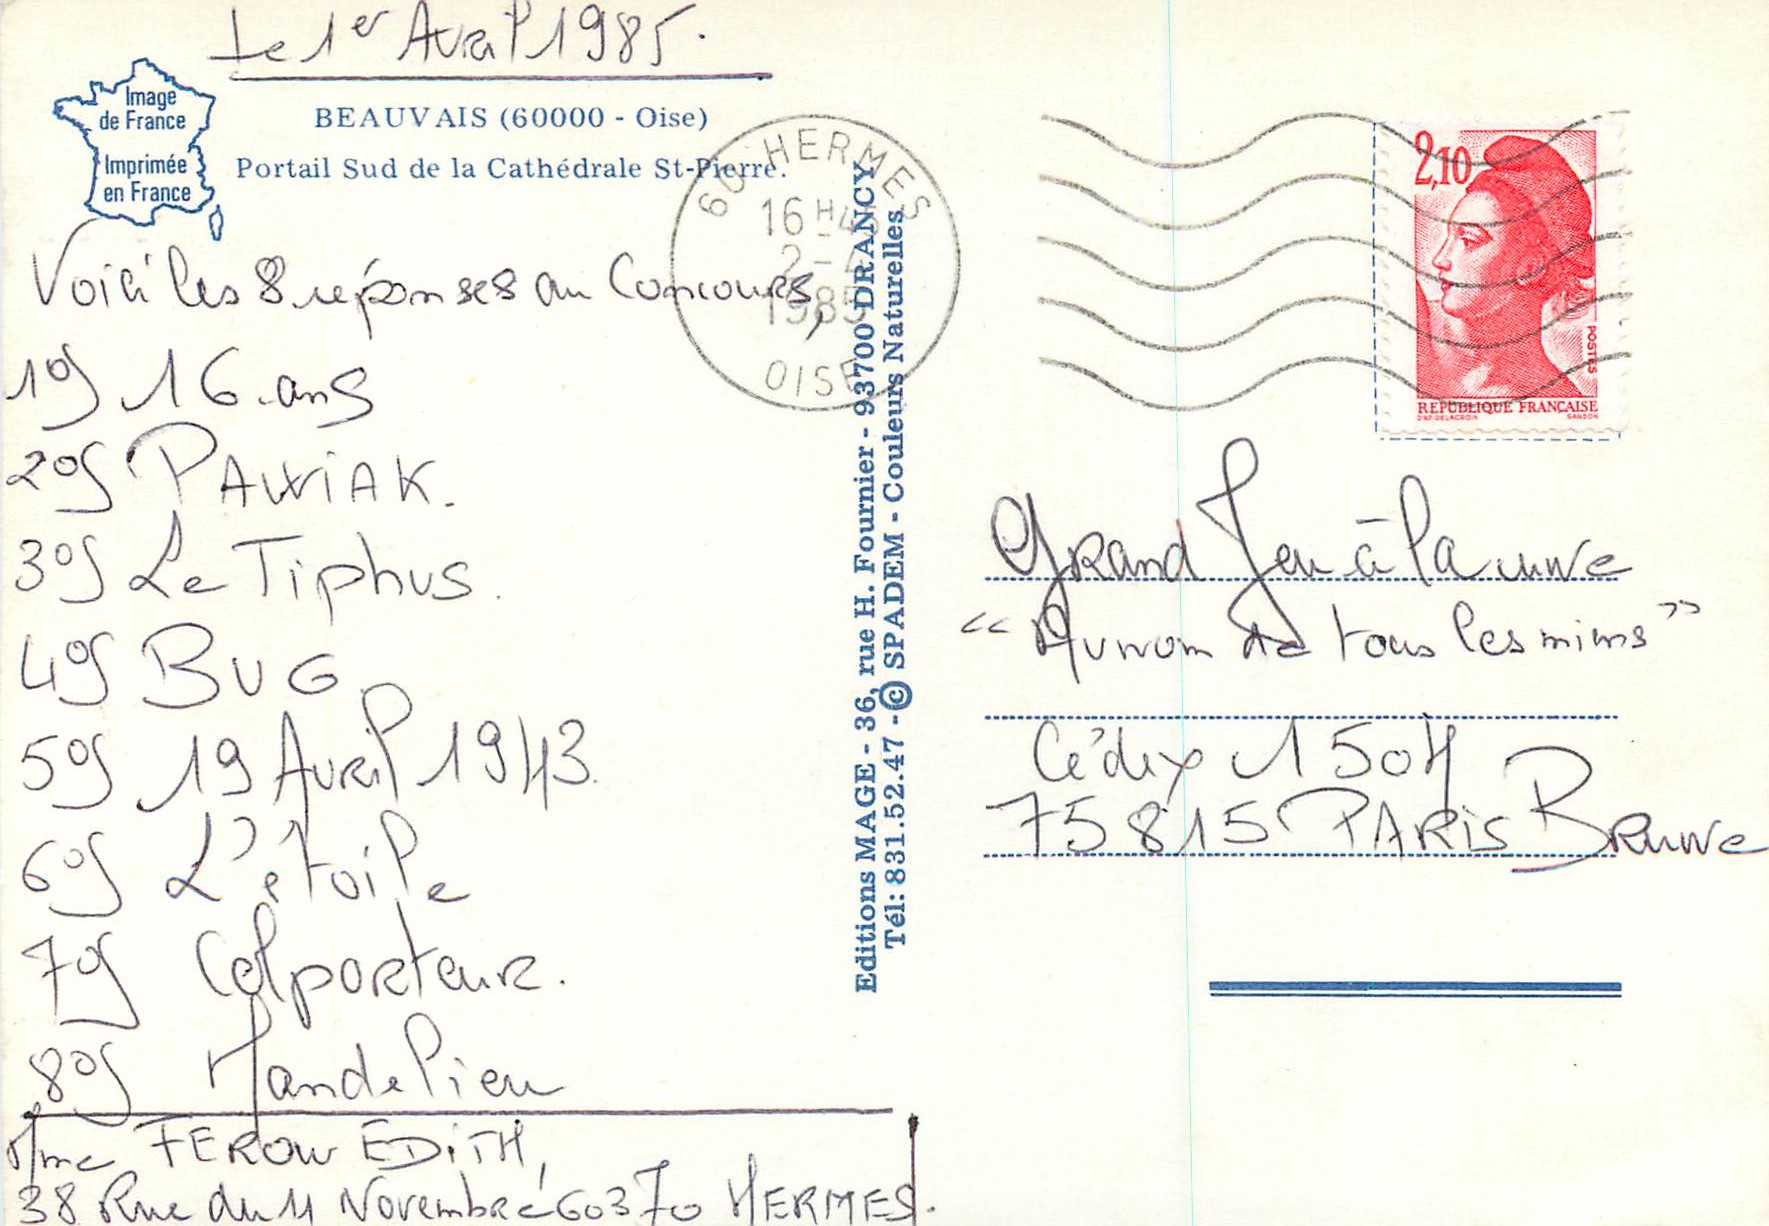 Le 1er Avril 1985.
Image
de France
Imprimée
en France
BEAUVAIS (60000 - Oise)
Portail Sud de la Cathédrale St-Pierre.
Voici les 8 réponses au Concours,
1°) 16 ans
2°) PAWIAK.
3°) Le Tiphus.
4°) BUG
5°) 19 Avril 1943.
6°) L'étoile
7°) Colporteur.
8°) Mandelieu
Mme FEROW EDITH,
38 Rue du 11 Novembre 60370 HERMES.
Editions MAGE - 36, rue H. Fournier - 93700 DRANCY
Tél: 831.52.47 - © SPADEM - Couleurs Naturelles
60 HERMES
16 H 45
2 -
1985
OISE
2,10
POSTES
REPUBLIQUE FRANÇAISE
D'AP. DELACROIX GANDON
Grand Jeu à la une
" Au nom de tous les miens "
Cédex 1504
75815 PARIS Brune